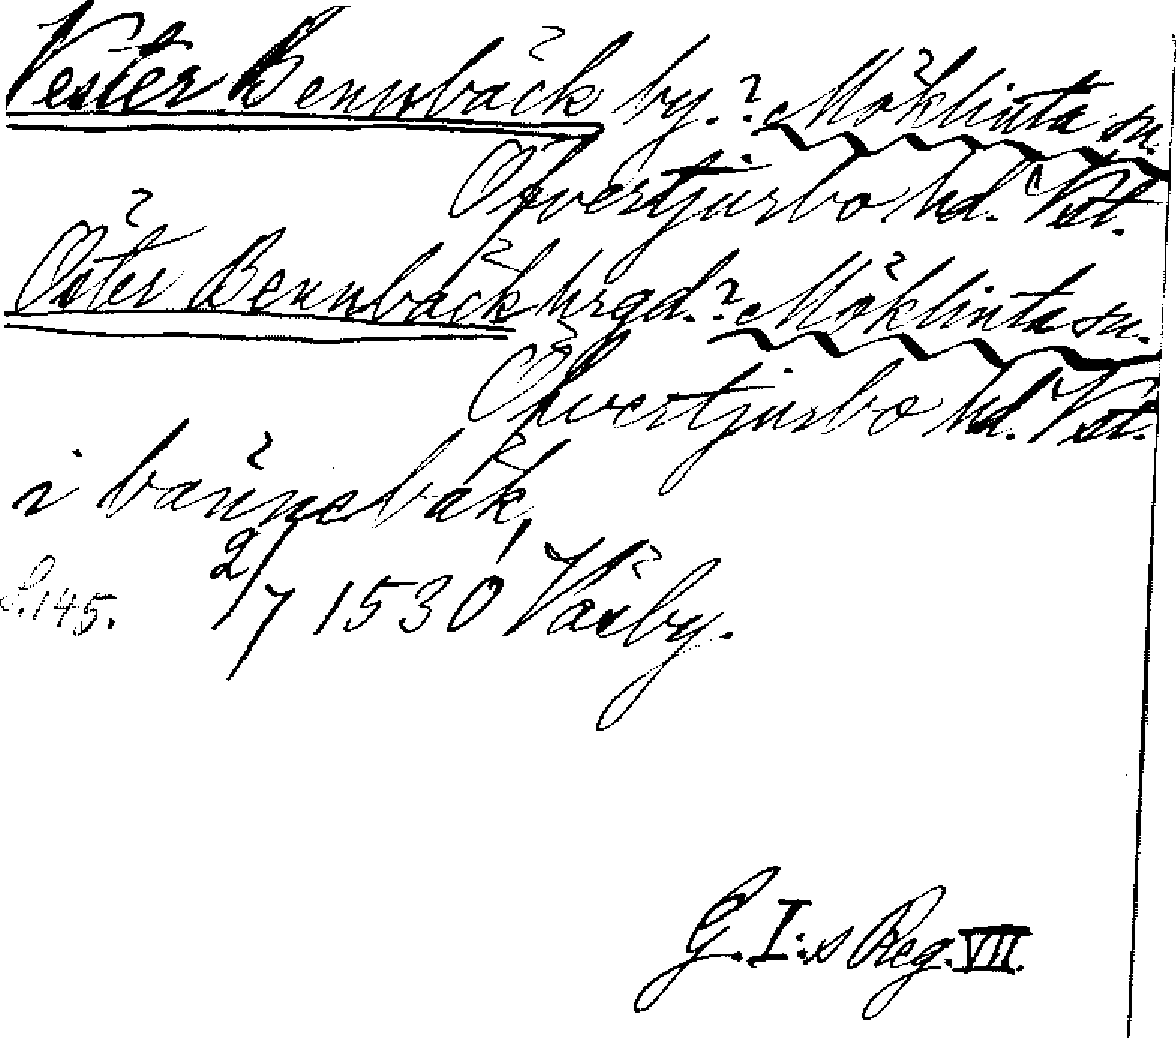 Vester Bennbäck by.? Möklinta sn.
Öfvertjurbo hd. Vst.
Öster Bennbäck hrgd.? Möklinta sn.
Öfvertjurbo hd. Vst.
i bännebäk,
S. 145. 2/7 1530 Väsby.
G. I:s Reg. VII.